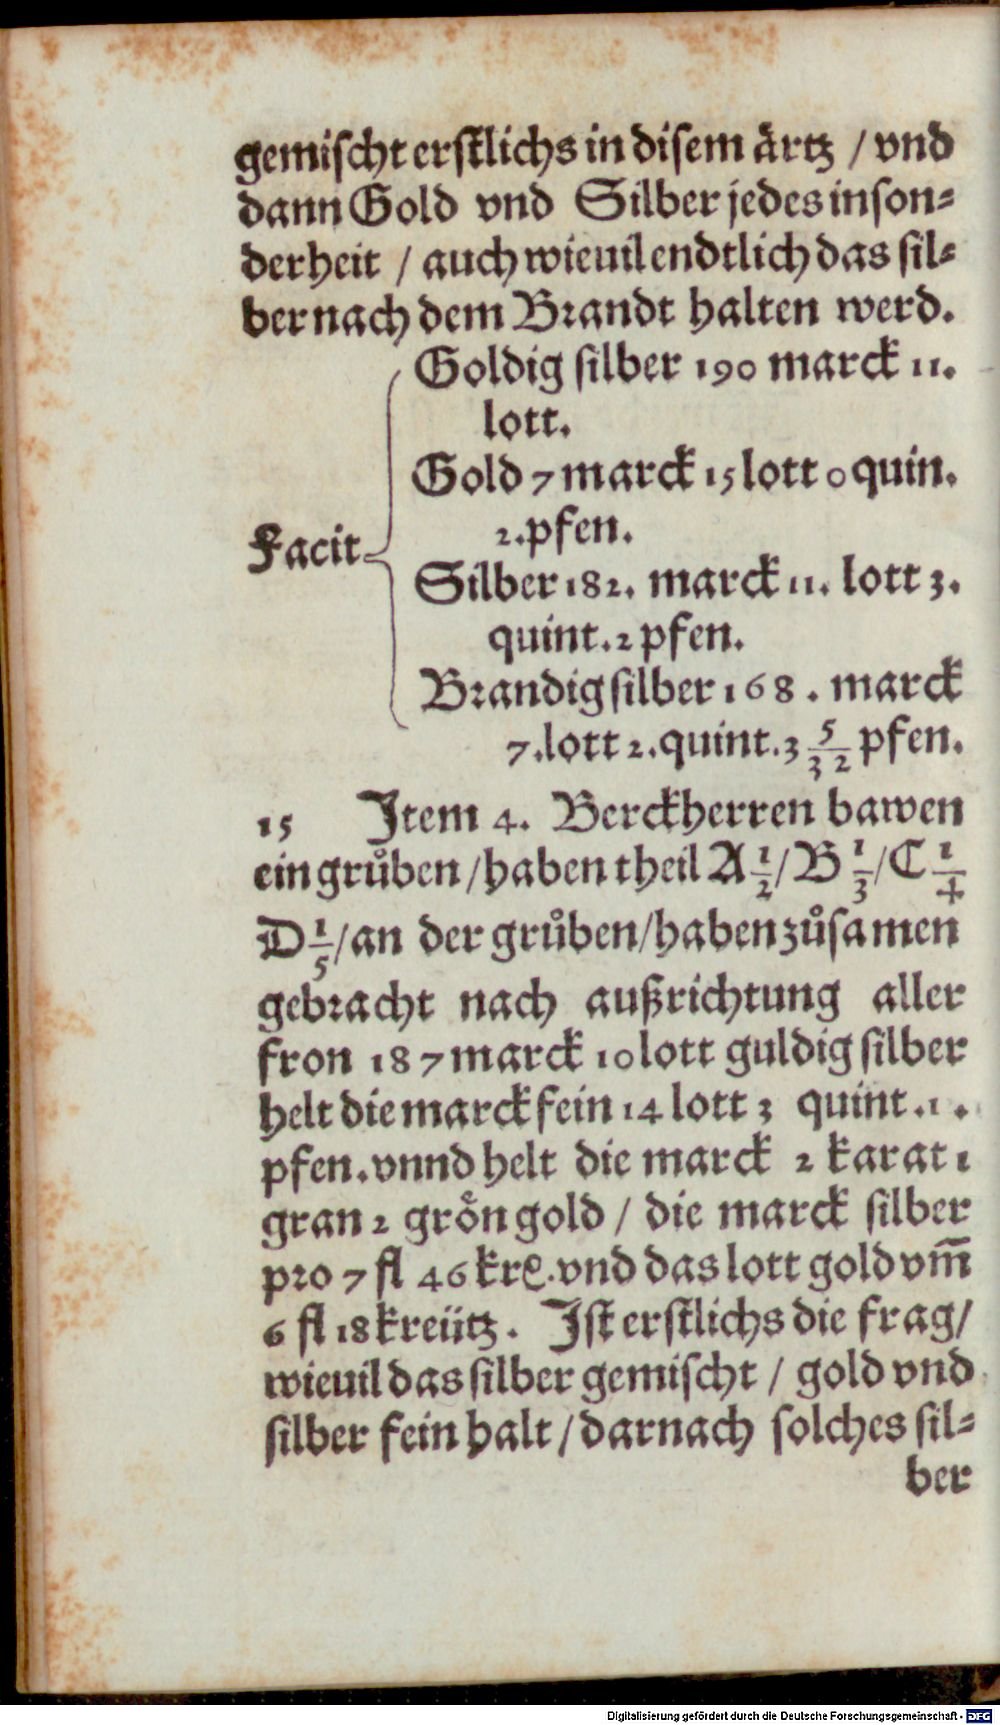 gemischt erstlichs in disem ärtz / vnd
dann Gold vnd Silber jedes inson⸗
derheit / auch wieuil endtlich das sil⸗
ber nach dem Brandt halten werd.
Goldig silber 190 marck 11.
lott.
Gold 7 marck 15 lott 0 quin.
2. pfen.
Facit
Silber 182. marck 11. lott 3.
quint. 2 pfen.
Brandigsilber 168. marck
7. lott 2. quint. 3 5/32 pfen.
15 Item 4. Berckherren bawen
ein grůben / haben theil A 1/2 / B 1/3 / C 1/4
D 1/5 / an der grůben / haben zůsamen
gebracht nach außrichtung aller
fron 187 marck 10 lott guldig silber
helt die marck fein 14 lott 3 quint. 1.
pfen. vnnd helt die marck 2 karat 1
gran 2 grön gold / die marck silber
pro 7 fl 46 krꝭ. vnd das lott gold vm̄
6 fl 18 kreütz. Ist erstlichs die frag /
wieuil das silber gemischt / gold vnd
silber fein halt / darnach solches sil⸗
ber
Digitalisierung gefördert durch die Deutsche Forschungsgemeinschaft - DFG